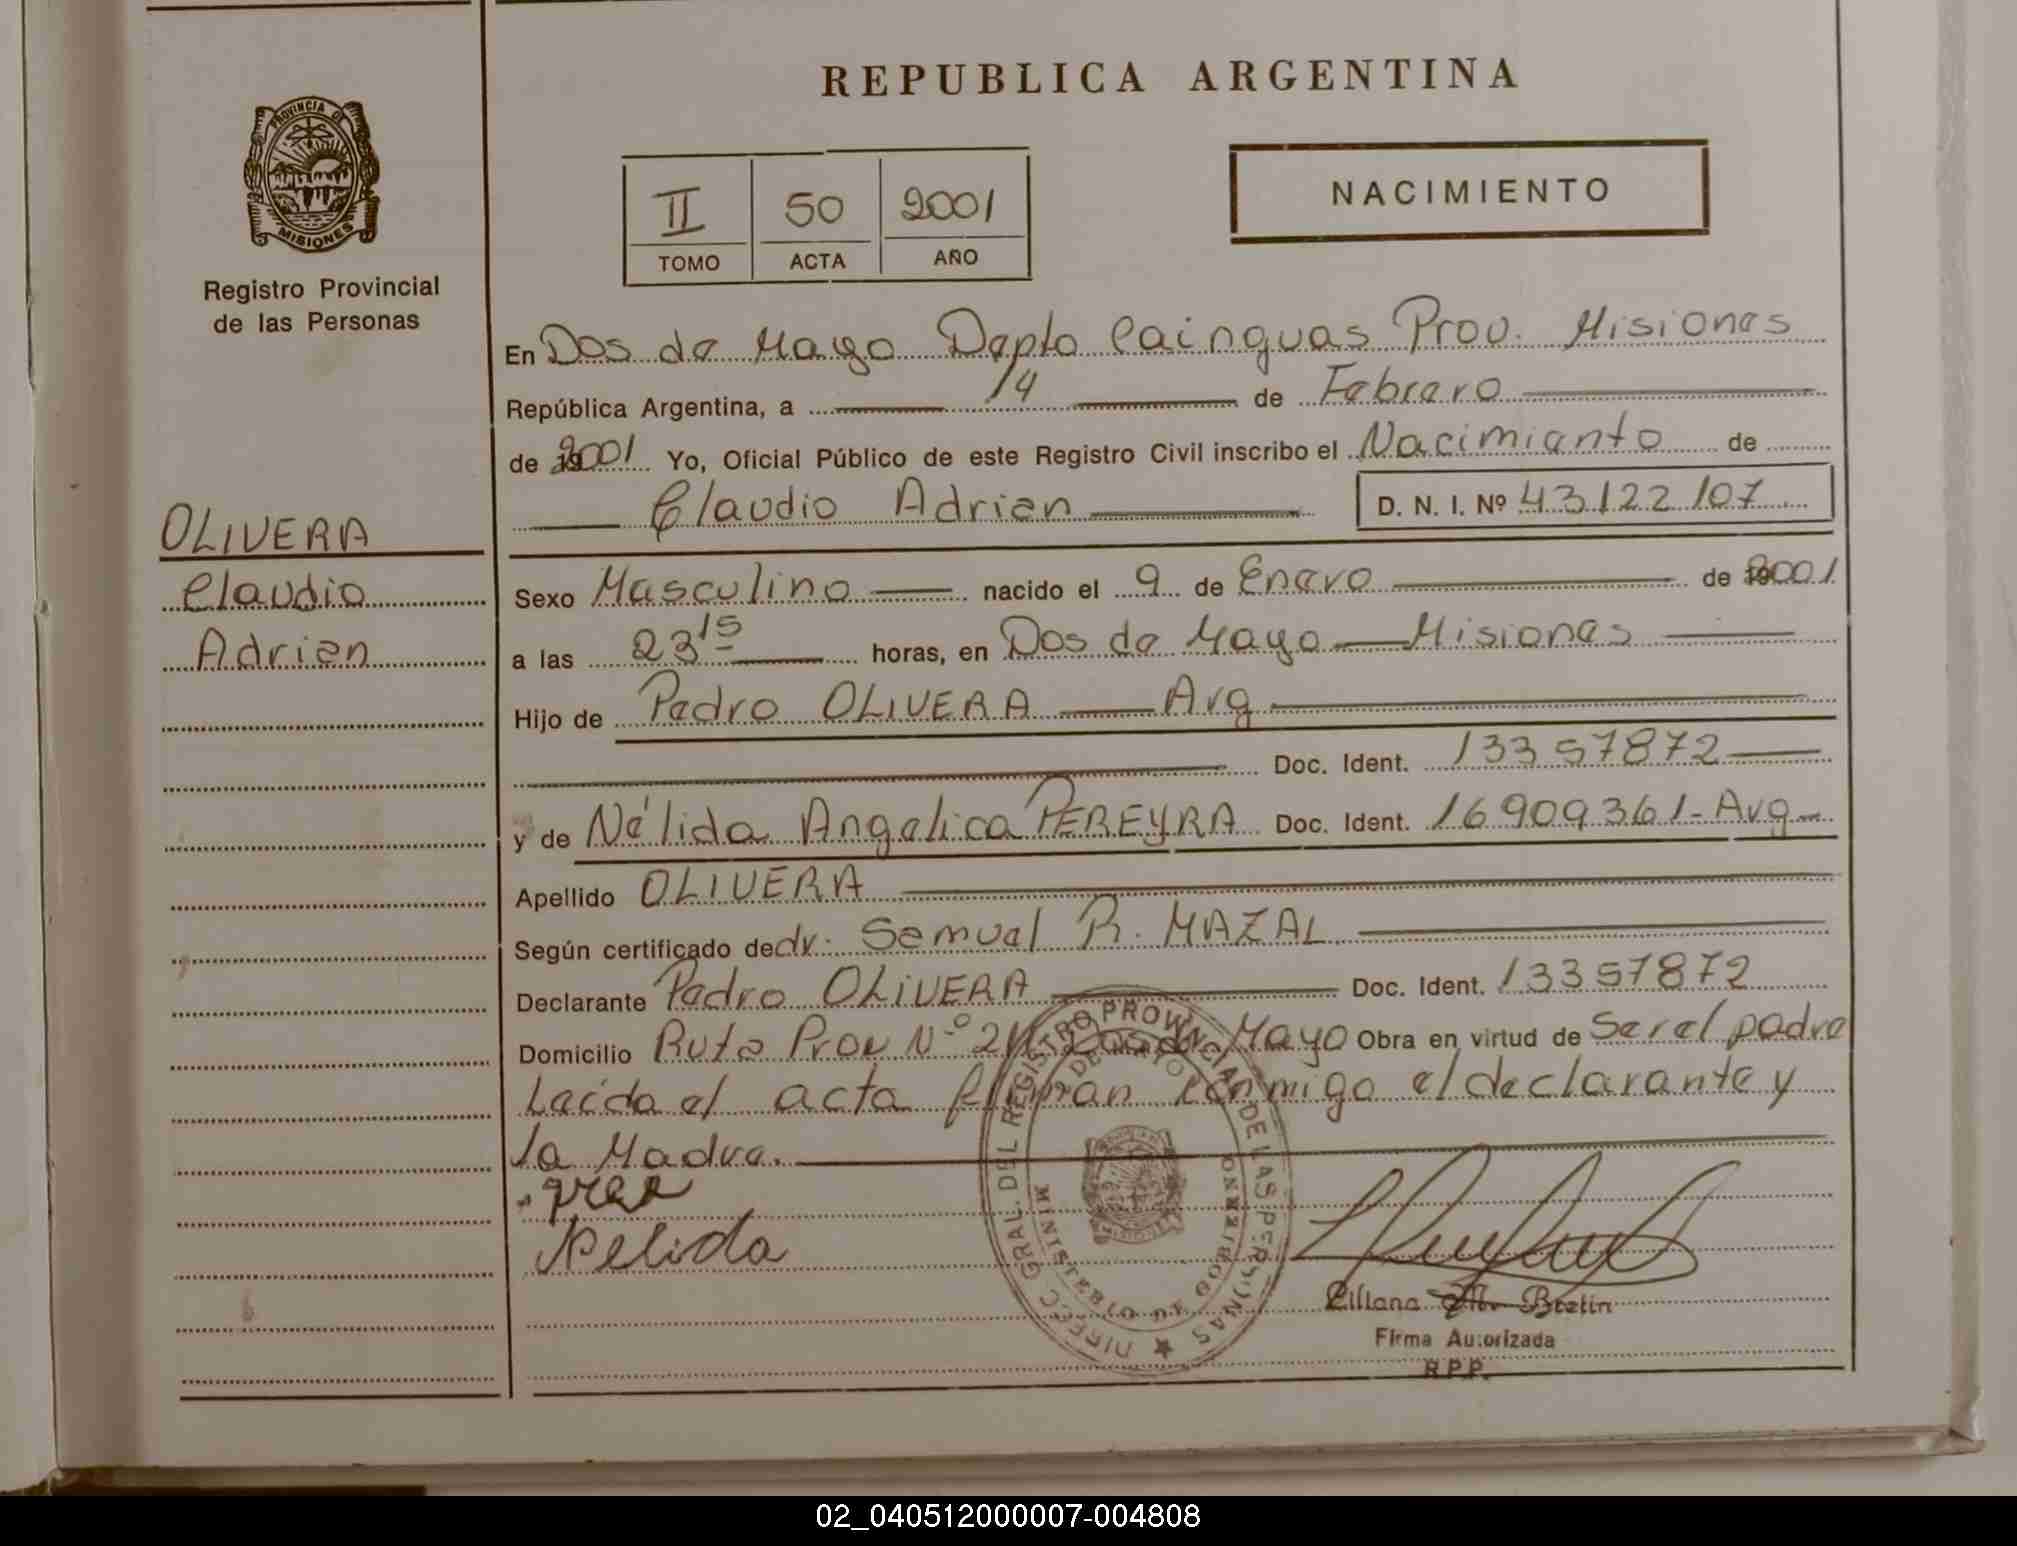 REPUBLICA ARGENTINA
PROVINCIA DE
MISIONES
Registro Provincial
de las Personas
II 50 2001
TOMO ACTA AÑO
NACIMIENTO
En Dos de Mayo Depto Cainguas Prov. Misiones
República Argentina, a 14 de Febrero
de 2001 Yo, Oficial Público de este Registro Civil inscribo el Nacimiento de
Claudio Adrian D. N. I. Nº 43122107
OLIVERA
Claudio
Adrian
Sexo Masculino nacido el 9 de Enero de 2001
a las 23 15 horas, en Dos de Mayo — Misiones
Hijo de Pedro OLIVERA — Arg
Doc. Ident. 13357872
y de Nélida Angelica PEREYRA Doc. Ident. 16909361 - Arg
Apellido OLIVERA
Según certificado de dr. Samuel R. MAZAL
Declarante Pedro OLIVERA Doc. Ident. 13357872
Domicilio Ruta Prov Nº 211 Dos de Mayo Obra en virtud de Ser el padre
Leída el acta firman conmigo el declarante y
la Madre.
Nelida
DIREC. GRAL. DEL REGISTRO PROVINCIAL DE LAS PERSONAS
MINISTERIO DE GOBIERNO
Liliana
Firma Autorizada
R.P.P.
02_040512000007-004808